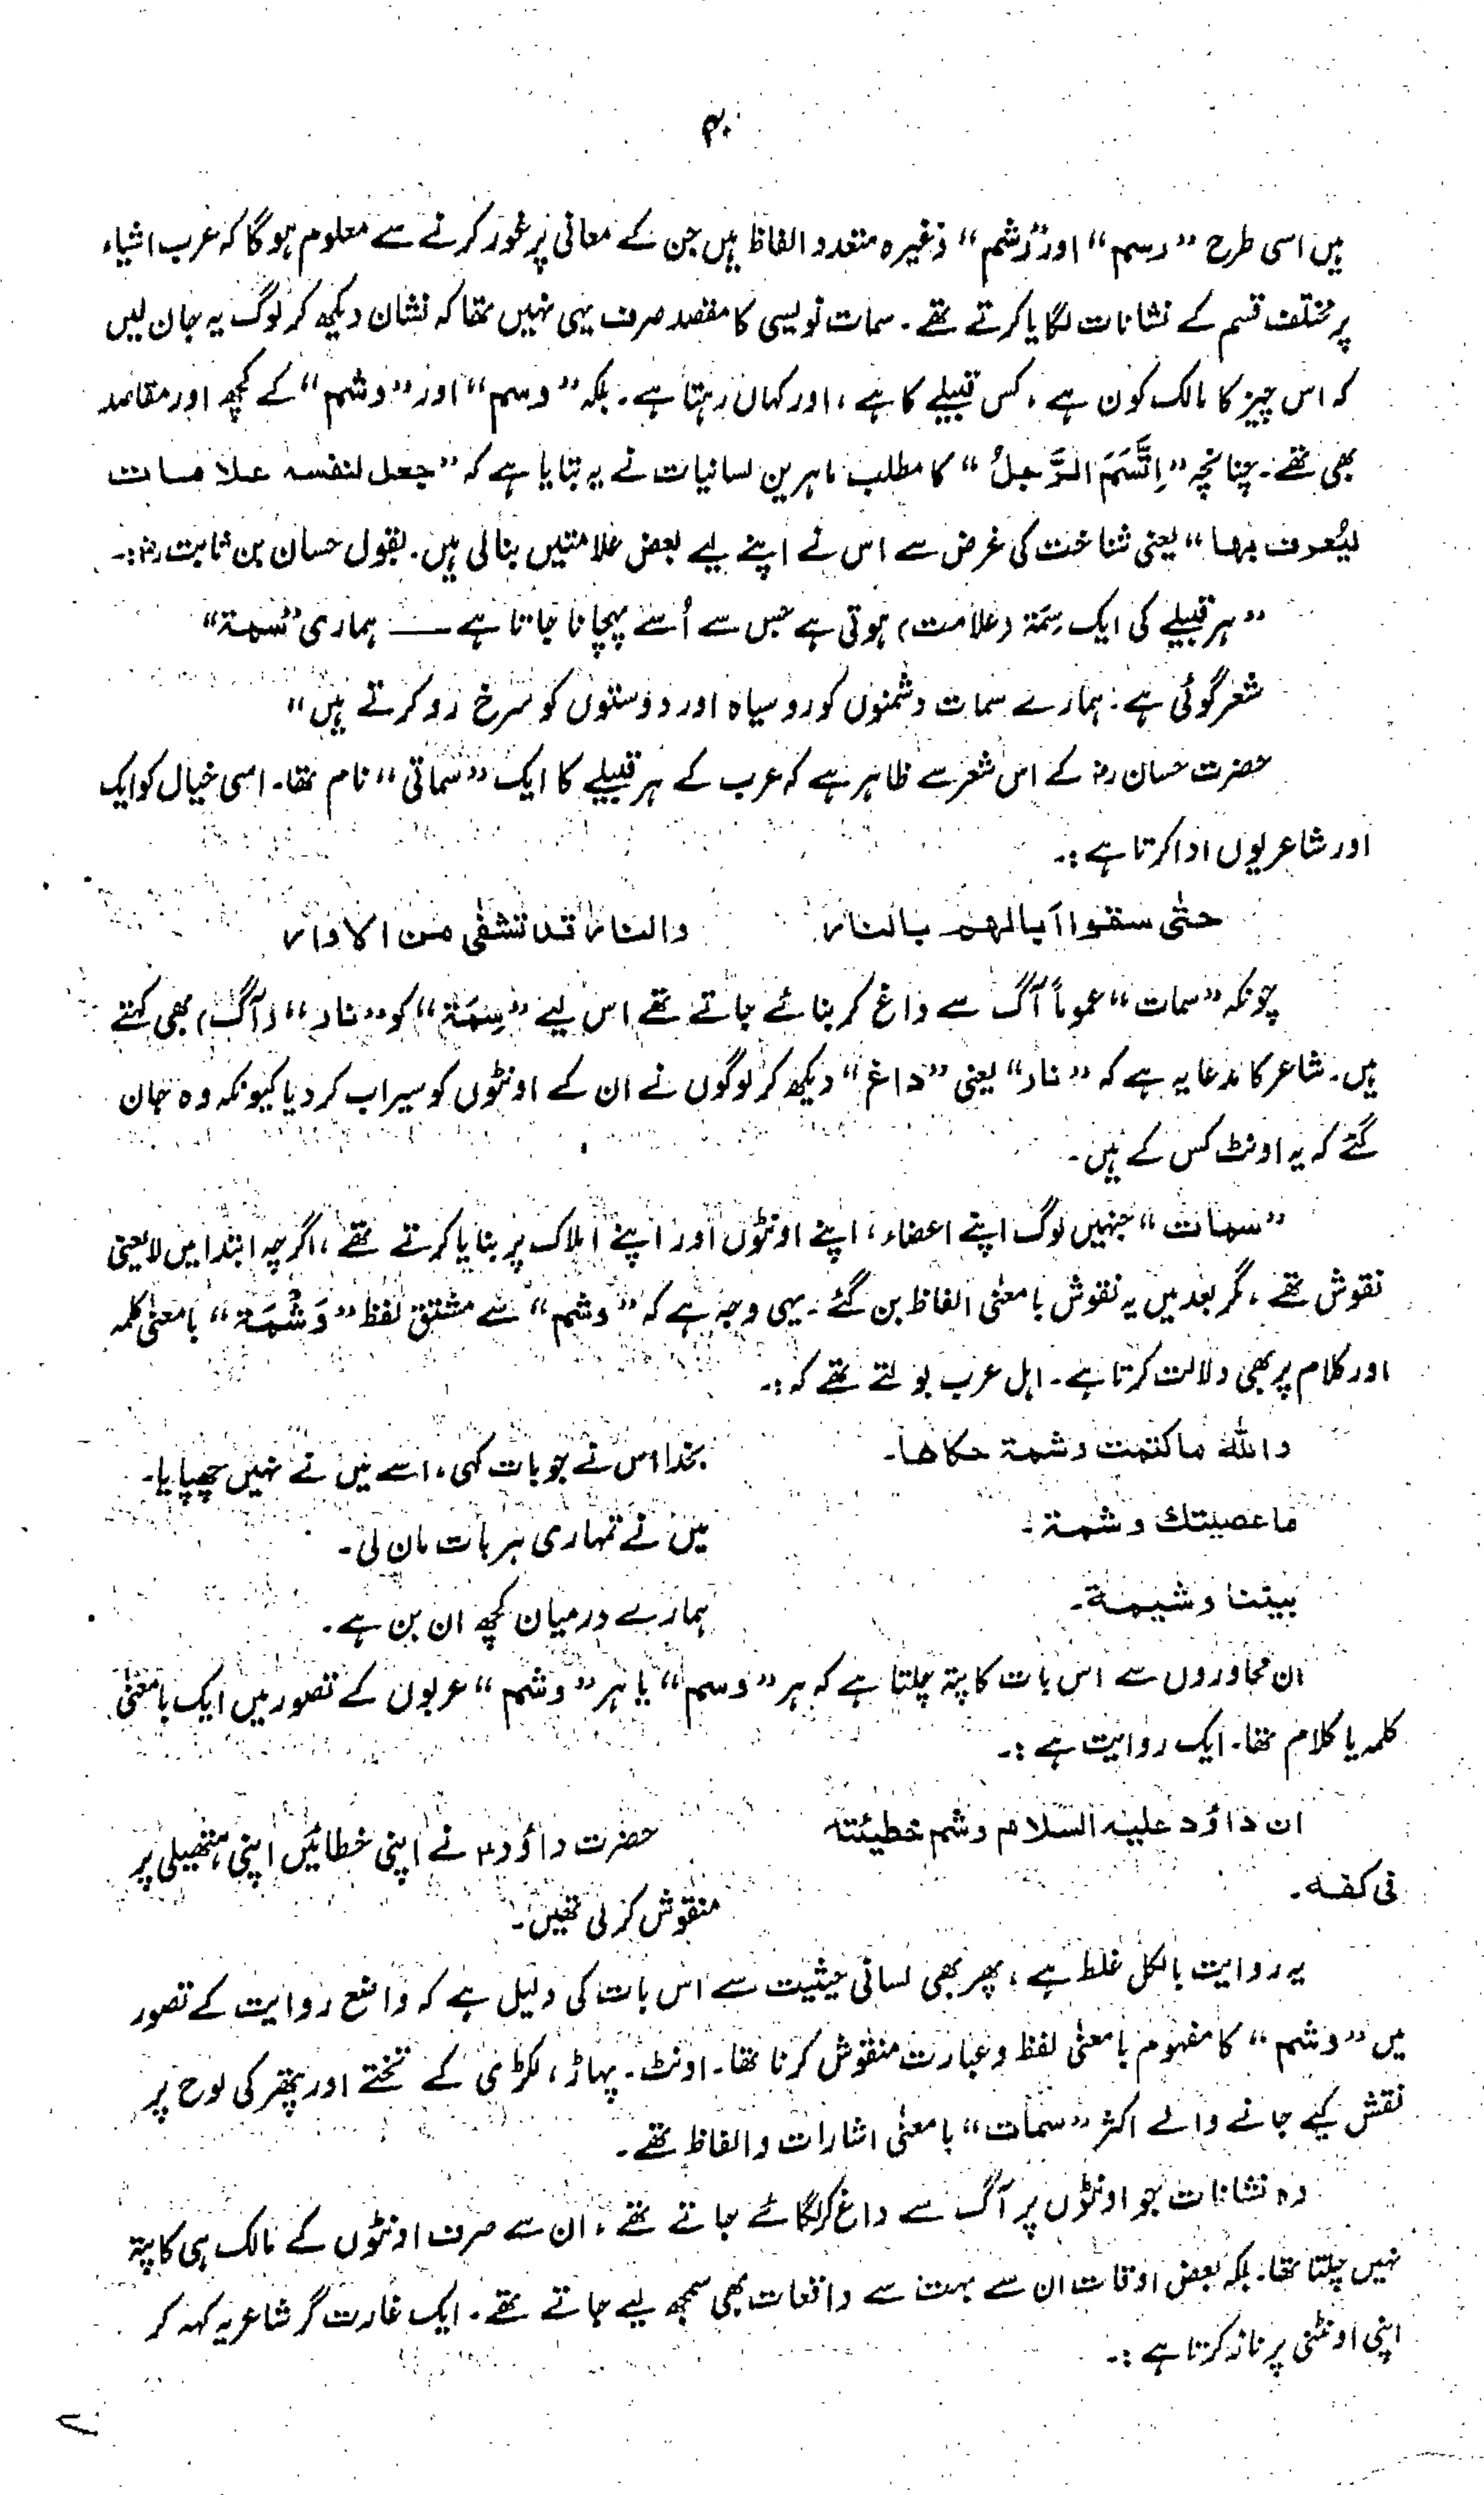 ۴۰
ہیں اسی طرح "رسم" اور "رشم" وغیرہ متعدد الفاظ ہیں جن کے معانی پر غور کرنے سے معلوم ہوگا کہ عرب اشیاء
پر مختلف قسم کے نشانات لگایا کرتے تھے۔ سمات نویسی کا مقصد صرف یہی نہیں تھا کہ نشان دیکھ کر لوگ یہ جان لیں
کہ اس چیز کا مالک کون ہے، کس قبیلے کا ہے، اور کہاں رہتا ہے۔ بلکہ "وسم" اور "وشم" کے کچھ اور مقاصد
بھی تھے۔ چنانچہ "اِتَّسَمَ الرَّجلُ" کا مطلب ماہرین لسانیات نے یہ بتایا ہے کہ "جعل لنفسہ علامات
لیُعرف بھا" یعنی شناخت کی غرض سے اس نے اپنے لیے بعض علامتیں بنالی ہیں۔ بقول حسان بن ثابت رضؓ:۔
"ہر قبیلے کی ایک سِمَۃ (علامت) ہوتی ہے جس سے اُسے پہچانا جاتا ہے —— ہماری "سمۃ"
شعر گوئی ہے: ہمارے سمات دشمنوں کو رو سیاہ اور دوستوں کو سرخ رو کرتے ہیں"
حضرت حسان رضؓ کے اس شعر سے ظاہر ہے کہ عرب کے ہر قبیلے کا ایک "سماتی" نام تھا۔ اسی خیال کو ایک
اور شاعر یوں ادا کرتا ہے:۔
حتٰی سقوا آبالھم بالنار والنار قد تشفٰی من الاوار
چونکہ "سمات" عموماً آگ سے داغ کر بنائے جاتے تھے اس لیے "سِمَۃ" کو "نار" (آگ) بھی کہتے
ہیں۔ شاعر کا مدعا یہ ہے کہ "نار" یعنی "داغ" دیکھ کر لوگوں نے ان کے اونٹوں کو سیراب کر دیا کیونکہ وہ جان
گئے کہ یہ اونٹ کس کے ہیں۔
"سمات" جنہیں لوگ اپنے اعضاء، اپنے اونٹوں اور اپنے املاک پر بنایا کرتے تھے، اگرچہ ابتدا میں لا یعنی
نقوش تھے، مگر بعد میں یہ نقوش بامعنٰی الفاظ بن گئے۔ یہی وجہ ہے کہ "وشم" سے مشتق لفظ "وَشْمَۃ" بامعنٰی کلمہ
اور کلام پر بھی دلالت کرتا ہے۔ اہل عرب بولتے تھے کہ:۔
واللہ ماکتمت وشمۃ حکاھا۔ بخدا اس نے جو بات کہی، اسے میں نے نہیں چھپایا۔
ماعصیتك وشمۃ۔ میں نے تمہاری ہر بات مان لی۔
بیننا وشیمۃ۔ ہمارے درمیان کچھ ان بن ہے۔
ان محاوروں سے اس بات کا پتہ چلتا ہے کہ ہر "وسم" یا ہر "وشم" عربوں کے تصور میں ایک بامعنٰی
کلمہ یا کلام تھا۔ ایک روایت ہے:۔
ان داؤد علیہ السلام وشم خطیئتہ حضرت داؤدؑ نے اپنی خطائیں اپنی ہتھیلی پر
فی کفہ۔ منقوش کرلی تھیں۔
یہ روایت بالکل غلط ہے، پھر بھی لسانی حیثیت سے اس بات کی دلیل ہے کہ واضع روایت کے تصور
میں "وشم" کا مفہوم بامعنٰی لفظ و عبارت منقوش کرنا تھا۔ اونٹ۔ پہاڑ، لکڑی کے تختے اور پتھر کی لوح پر
نقش کیے جانے والے اکثر "سمات" بامعنٰی اشارات و الفاظ تھے۔
وہ نشانات جو اونٹوں پر آگ سے داغ کر لگائے جاتے تھے، ان سے صرف اونٹوں کے مالک ہی کا پتہ
نہیں چلتا تھا۔ بلکہ بعض اوقات ان سے بہت سے واقعات بھی سمجھ لیے جاتے تھے۔ ایک غارت گر شاعر یہ کہہ کر
اپنی اونٹنی پر ناز کرتا ہے:۔